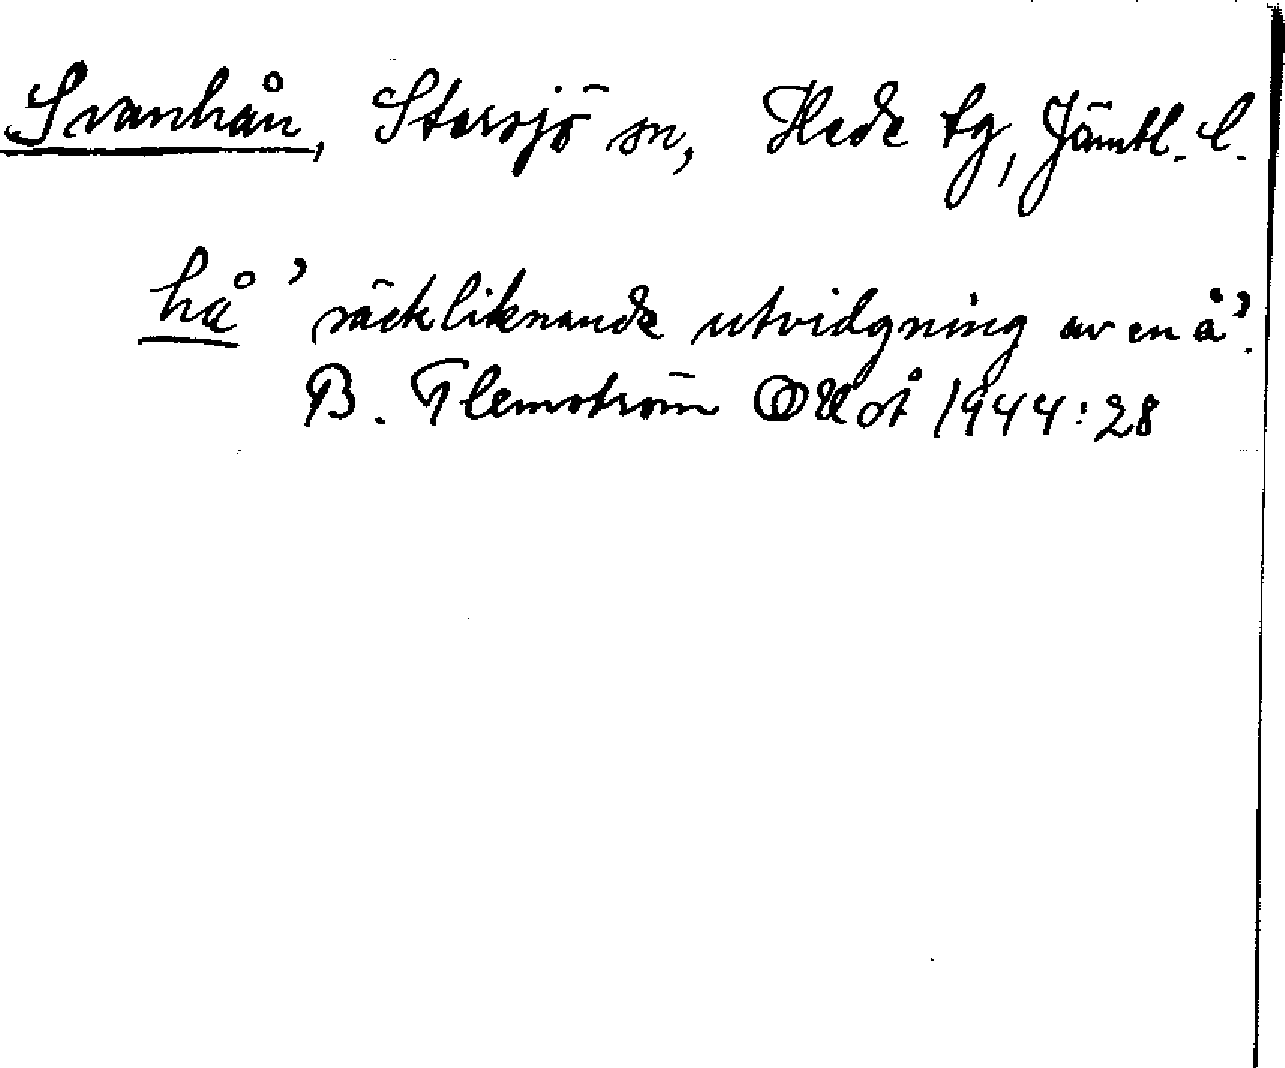 Svanhån, Storsjö sn, Hede tg, Jämtl. l.
hå ’säckliknande utvidgning av en å’.
B. Flemström OUÅ 1944:28